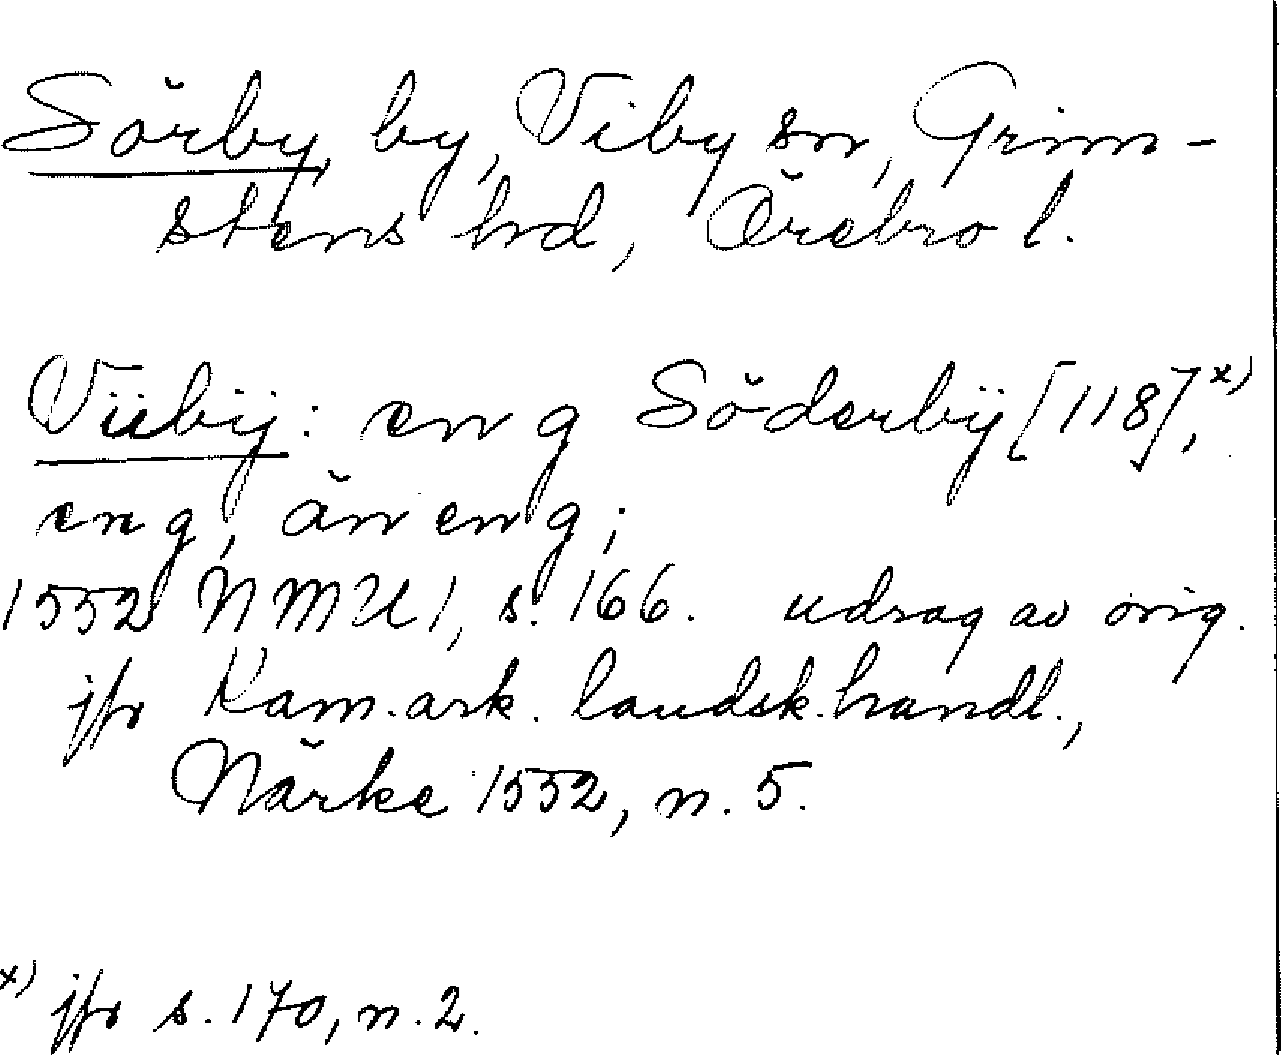 Sörby, by, Viby sn, Grim-
stens hd, Örebro l.
Viibÿ: eng g Söderbÿ [118],x)
eng, än eng;
1552 NMU 1, s. 166. udrag av orig.
jfr Kam.ark. landsk.handl.,
Närke 1552, n. 5.
x) jfr s. 170, n. 2.